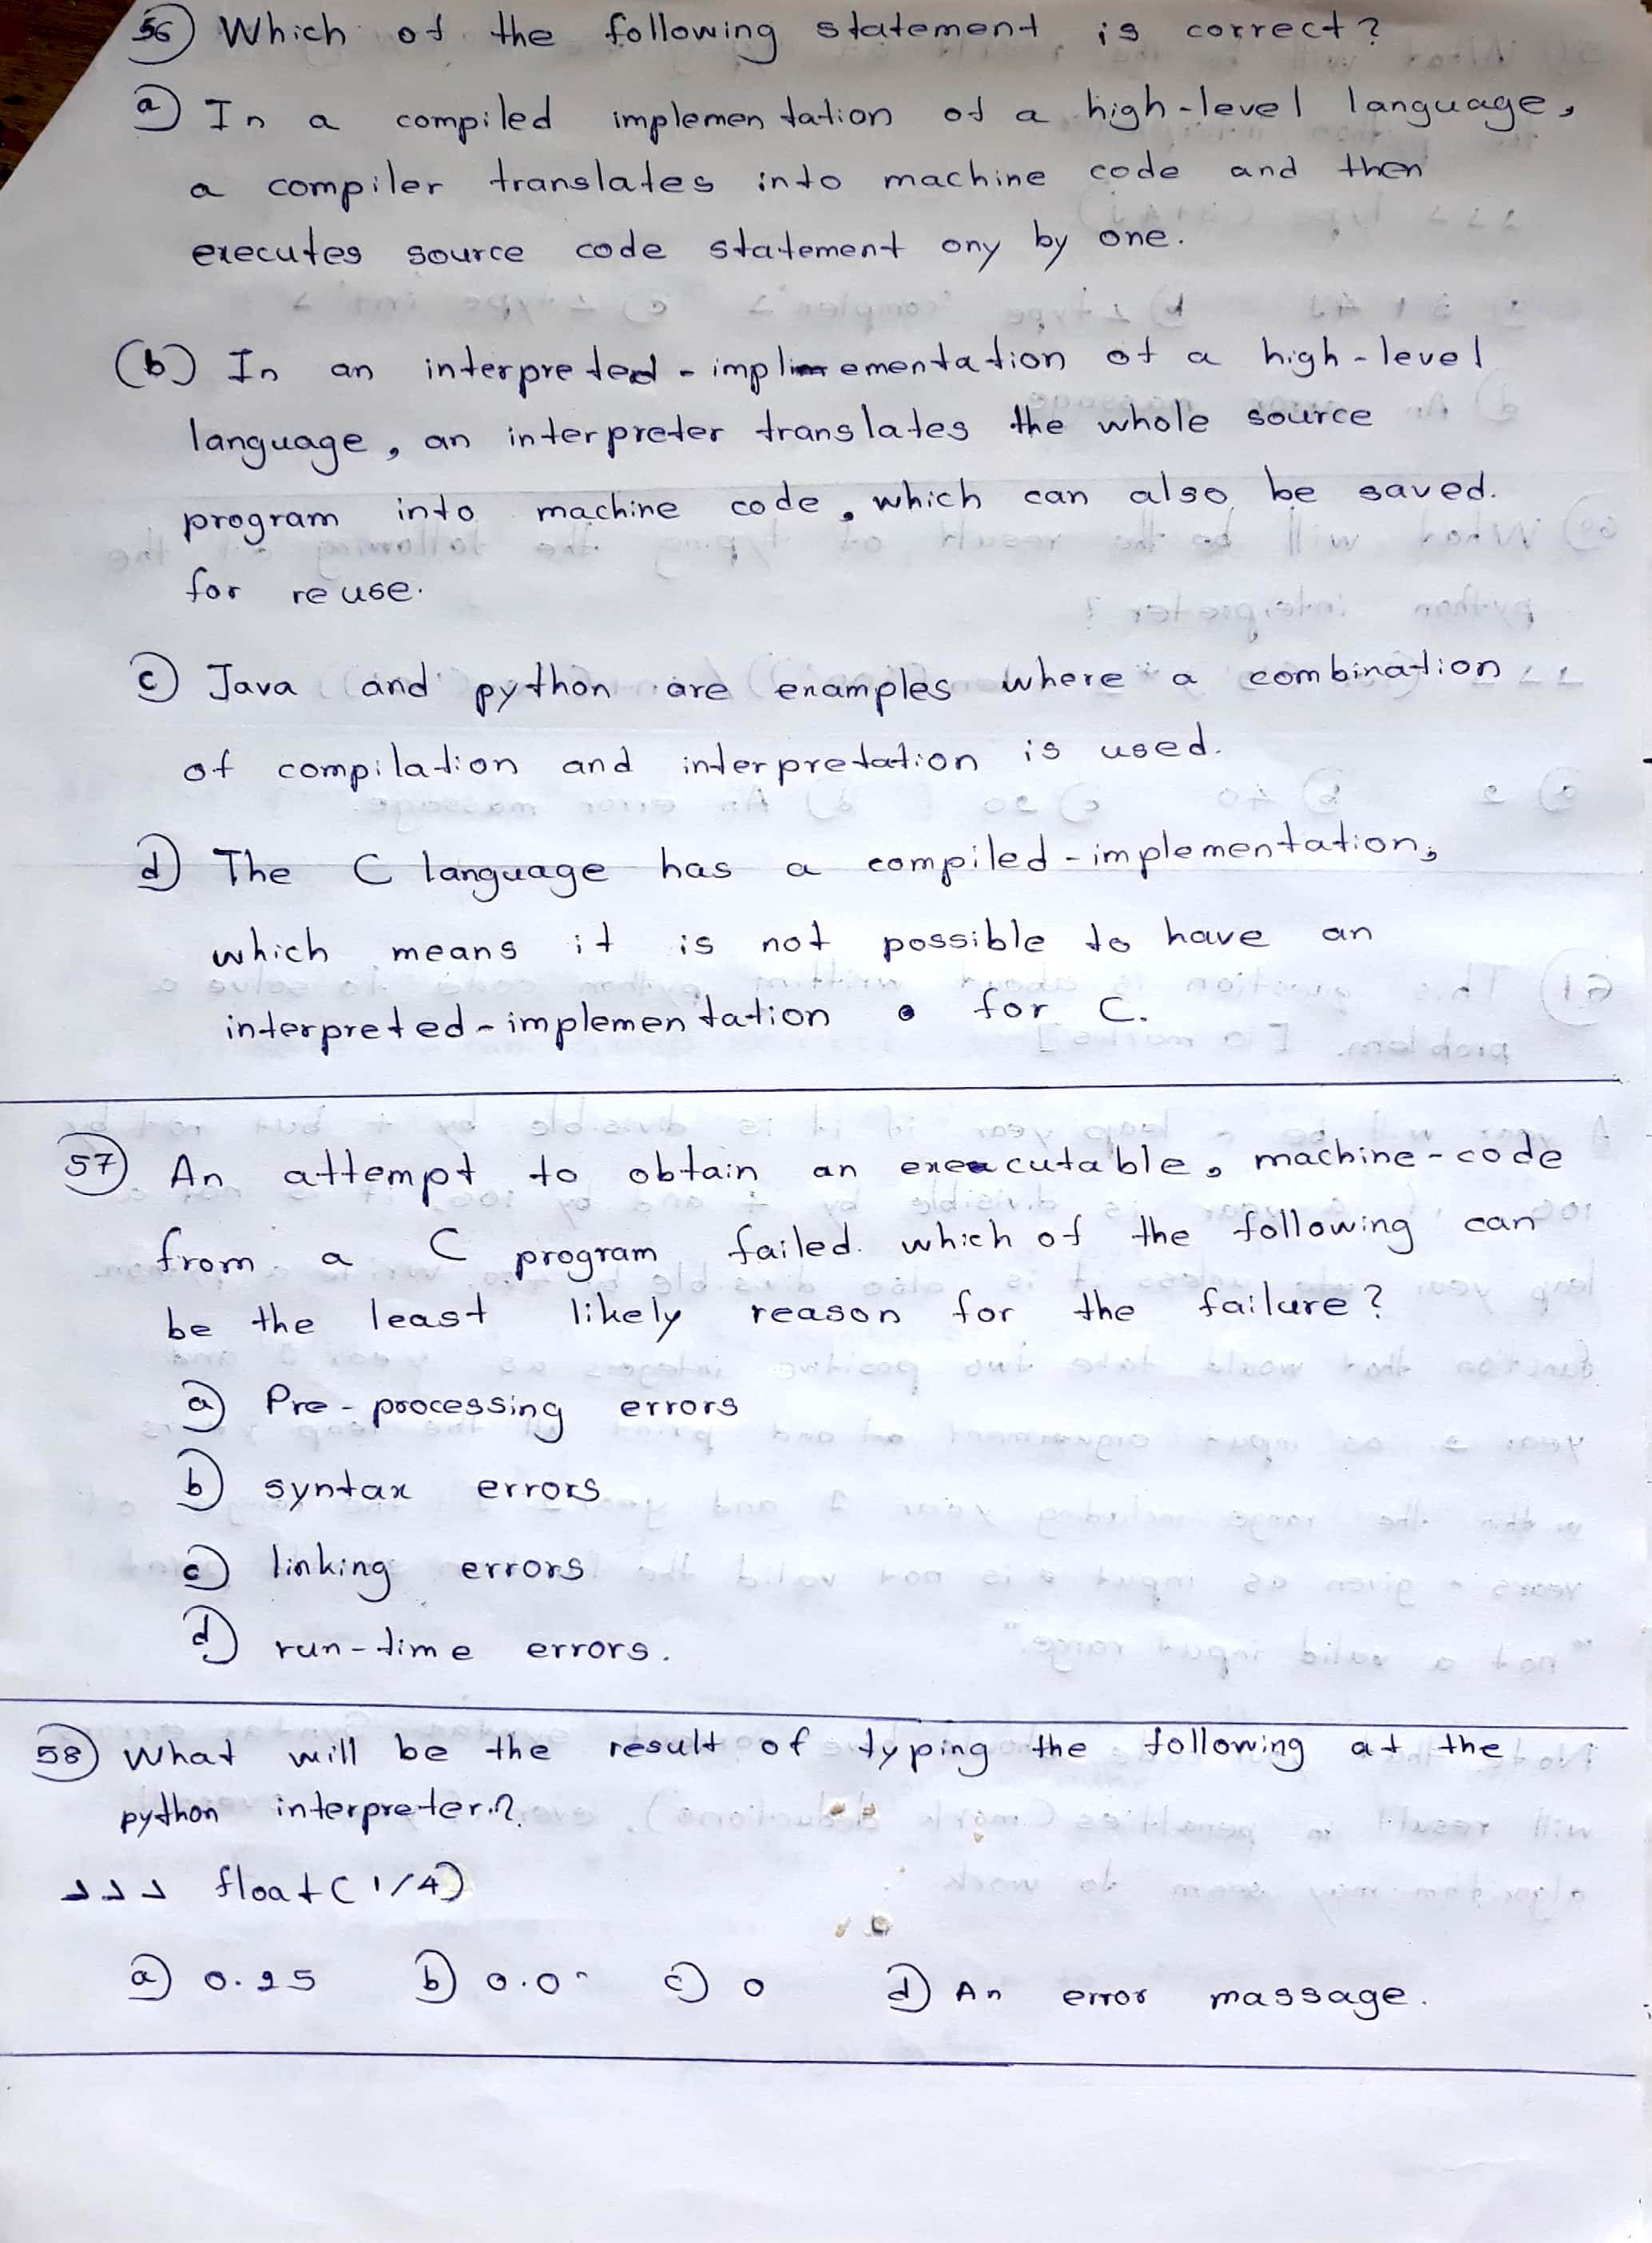 56) Which of the following statement is correct?
a) In a compiled implementation of a high-level language,
a compiler translates into machine code and then
executes source code statement ony by one.
(b) In an interpreted - implimementation of a high-level
language, an interpreter translates the whole source
program into machine code, which can also be saved.
for reuse.
c) Java and python are examples where a combination
of compilation and interpretation is used.
d) The C language has a compiled-implementation,
which means it is not possible to have an
interpreted-implementation for C.
57) An attempt to obtain an executable, machine-code
from a C program failed. which of the following can
be the least likely reason for the failure?
a) Pre-poocessing errors
b) syntax errors
c) linking errors
d) run-time errors.
58) What will be the result of typing the following at the
python interpreter?
>>> float(1/4)
a) 0.25 b) 0.0 c) 0 d) An error massage.